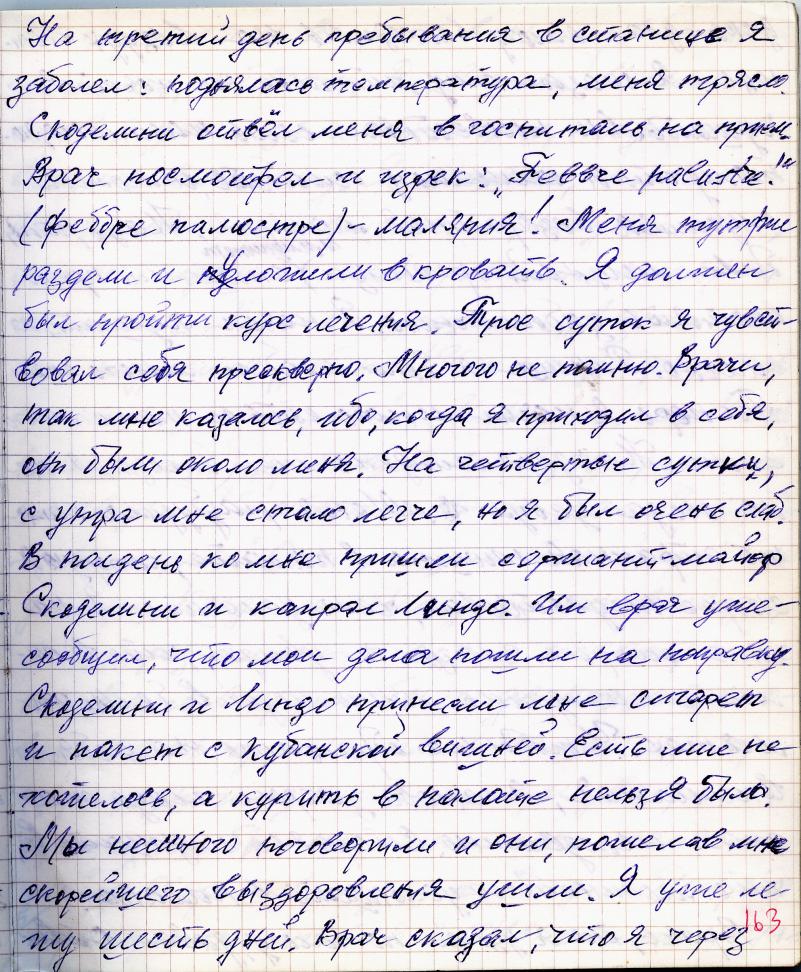 На третий день пребывания в станице я
заболел: поднялась температура, меня трясло.
Скоделини отвёл меня в госпиталь на прием.
Врач посмотрел и изрек:
(феббре палюстре) - малярия! Меня тут же
раздели и уложили в кровать. Я должен
был пройти курс лечения. Трое суток я чувст-
вовал себя прескверно. Многого не помню. Врачи,
так мне казалось, ибо, когда я приходил в себя,
они были около меня. На четвертые сутки,
с утра мне стало легче, но я был очень слаб.
В полдень ко мне пришли сержант-майор
Скоделини и капрал Линдо. Им врач уже
сообщил, что мои дела пошли на поправку.
Скоделини и Линдо принесли мне сигарет
и пакет с кубанской вишней. Есть мне не
хотелось, а курить в палате нельзя было.
Мы немного поговорили и они, пожелав мне
скорейшего выздоровления ушли. Я уже ле-
жу шесть дней. Врач сказал, что я через
163